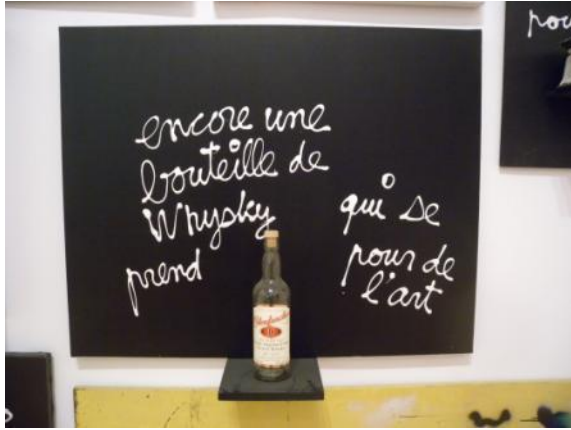 encore une
bouteille de
Whysky qui se
prend pour de
l'art